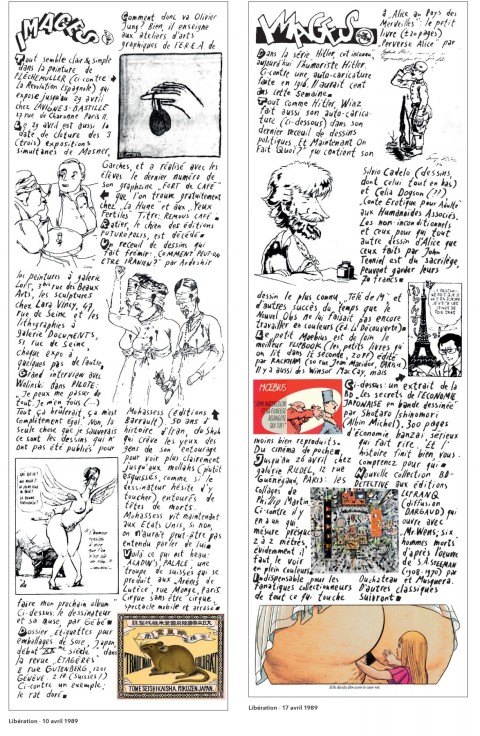 IMAGES
Tout semble clair & simple
dans la peinture de
FLECHEMULLER (ci contre
La Révolution Espagnole) qui
expose jusqu'au 29 avril
chez LAVIGNES-BASTILLE
27 rue de Charonne Paris 11.
Le 29 avril est aussi la
date de clôture des 3
(trois) expositions
simultanées de Mosner,
Comment donc va Olivier
Jung? Bien, il enseigne
aux ateliers d'arts
graphiques de l'E.R.E.A. de
Garches, et a réalisé avec les
élèves le dernier numéro de
son graphzine "FORT DE CAFÉ"
que l'on trouve gratuitement
chez La Hune et aux Yeux
Fertiles. Titre: REMOUS CAFÉ
Ratier, le chien des éditions
FUTUROPOLIS, est décédé.
Un recueil de dessins qui
fait frémir: COMMENT PEUT-ON
ETRE IRANIEN? par Ardeshir
les peintures à galerie
Loft, 3bis rue des Beaux
Arts, les sculptures
chez Lara Vincy, 47
rue de Seine et les
lithographies à
galerie DOCUMENTS,
53 rue de Seine
chaque expo à
quelques pas de l'autre.
Grand interview avec
Wolinski dans PILOTE:
"Je peux me passer de
tout. Je m'en fous (...)
Tout ça brûlerait, ça m'est
complètement égal. Non, la
seule chose que je sauverais
ce sont les dessins qui n'
ont pas été publiés pour
Mohassess (éditions
Barrault). 50 ans d'
histoire d'Iran, du Shah
qui crève les yeux des
gens de son entourage
pour voir plus clairement
jusqu'aux mollahs (petits
esquissés, comme si le
dessinateur hésite d'y
toucher), entourés de
têtes de morts.
Mohassess vit maintenant
aux États Unis, si non,
on n'aurait peut-être pas
entendu parler de lui.
Voilà ce qui est beau:
"ALADIN'S PALACE", une
troupe de suisses qui se
produit aux "Arènes de
Lutèce", rue Monge, Paris.
Cirque sans être cirque,
spectacle mobile et creusé
faire mon prochain album"
Ci-dessus: le dessinateur
et sa muse, par Gébé
Dossier étiquettes pour
emballages de soie, Japon
début XXme siècle dans
la revue "ÉTAGÈRES"
8 rue GUTENBERG, 1201
GENÈVE 2 FR (Suisses!)
Ci-contre un exemple:
le rat doré
TRADE MARK
TOME SEISHI KAISHA, RIKUZEN, JAPAN.
Libération - 10 avril 1989
IMAGES
Dans la série Hitler, cet inconnu,
aujourd'hui l'humoriste Hitler.
Ci-contre une auto-caricature
faite en 1916. Il aurait cent
ans cette semaine.
Tout comme Hitler, Wiaz
fait aussi son auto-carica-
ture (ci-dessous) dans son
dernier recueil de dessins
politiques, Et Maintenant On
Fait Quoi?" qui contient son
à "Alice au Pays des
Merveilles": le petit
livre (±20 pages)
"Perverse Alice" par
Silvio Cadelo (dessins,
dont celui tout en bas)
et Celia Dogson (??)
"Conte Érotique pour Adulte"
aux Humanoïdes Associés.
Les non-inconditionnels
et ceux pour qui tout
autre dessin d'Alice que
ceux faits par John
Tenniel est du sacrilège
peuvent garder leurs
dessin le plus connu "Tété de M" et
d'autres succès du temps que le
Nouvel Obs ne lui faisait pas encore
travailler en couleurs (éd. La Découverte)
Le petit Moebius est de loin le
meilleur FLIPBOOK (les petits livres qu'
on lit dans 1/2 seconde, 20FF) édité
par RACKHAM
Il y a aussi des Winsor MacCay, mais
MŒBIUS
Ci-dessus: un extrait de la
BD, les secrets de l'ÉCONOMIE
JAPONAISE en bande dessinée
par Shotaro Ishinomori
(Albin Michel). 300 pages
d'économie banzaï sérieux
qui fait rire. Et l'
histoire finit bien, vous
comprenez pour qui
Nouvelle collection BD-
DETECTIVE aux éditions
LEFRANCQ
(diffusion
DARGAUD) qui
ouvre avec
"Mr. Wens, six
hommes morts
d'après l'œuvre
de S.A. STEEMAN
(1908-1970) par
Duchateau et Musquera.
D'autres classiques
suivront
moins bien reproduits
Du cinéma de poche
Jusqu'au 26 avril chez
galerie RUDEL, 12 rue
Guénégaud, PARIS: les
collages de
Phillip Martin
Ci-contre il y
en a un qui
mesure presque
2 à 2 mètres,
évidemment il
faut le voir
en plein couleurs
Indispensable pour les
fanatiques collectionneurs
de tout ce qui touche
Elle décida d'en avoir le cœur net.
Libération - 17 avril 1989